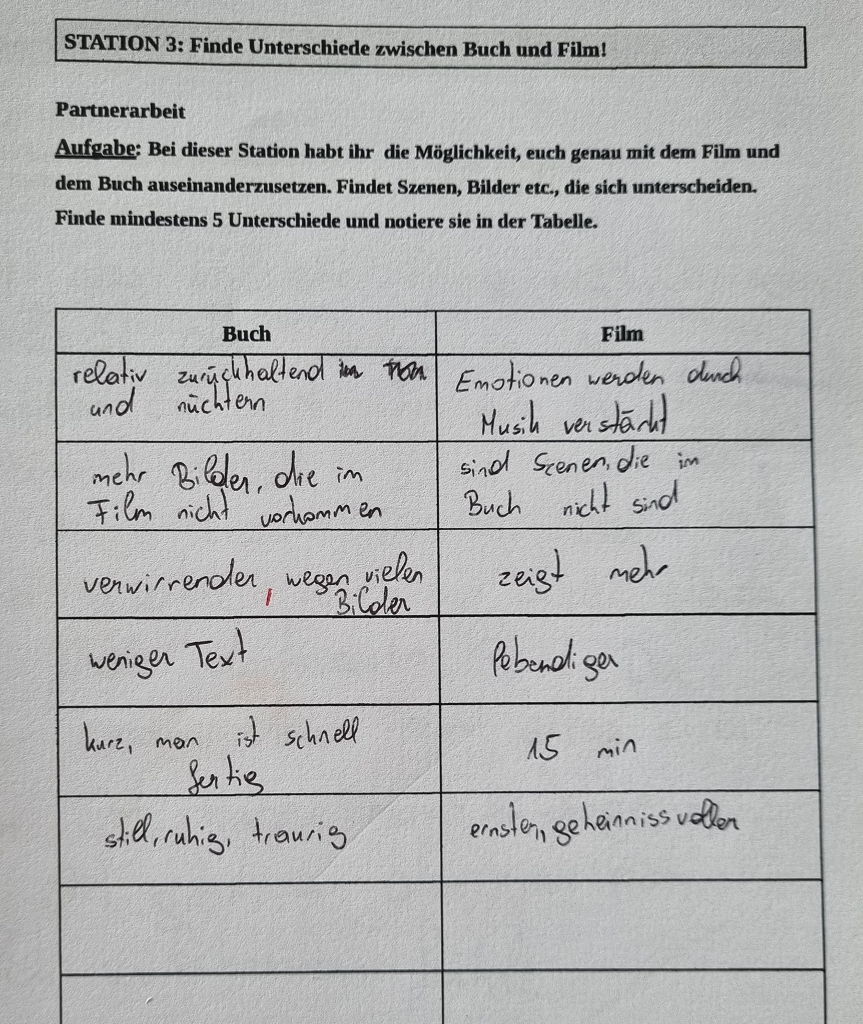 STATION 3: Finde Unterschiede zwischen Buch und Film!
Partnerarbeit
Aufgabe: Bei dieser Station habt ihr die Möglichkeit, euch genau mit dem Film und
dem Buch auseinanderzusetzen. Findet Szenen, Bilder etc., die sich unterscheiden.
Finde mindestens 5 Unterschiede und notiere sie in der Tabelle.
Buch
Film
relativ zurückhaltend
und nüchtern
Emotionen werden durch
Musik verstärkt
mehr Bilder, die im
Film nicht vorkommen
sind Scenen, die im
Buch nicht sind
verwirrender, wegen vielen
Bilder
zeigt mehr
weniger Text
lebendiger
kurz, man ist schnell
fertig
15 min
still, ruhig, traurig
ernster, geheinnissvoller